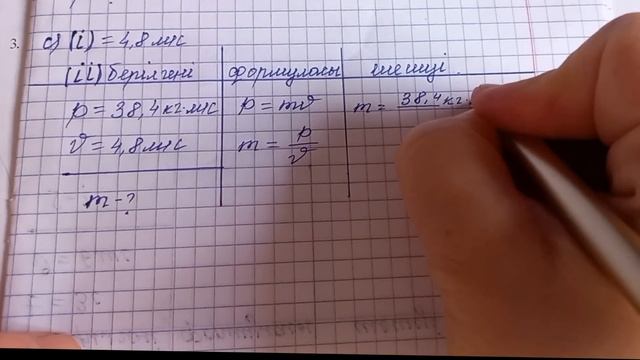 3. c) (i) = 4,8 м/с
(ii) берілгені формуласы шешуі
p = 38,4 кг·м/с p = mϑ m = 38,4 кг·
ϑ = 4,8 м/с m = p/ϑ
m - ?